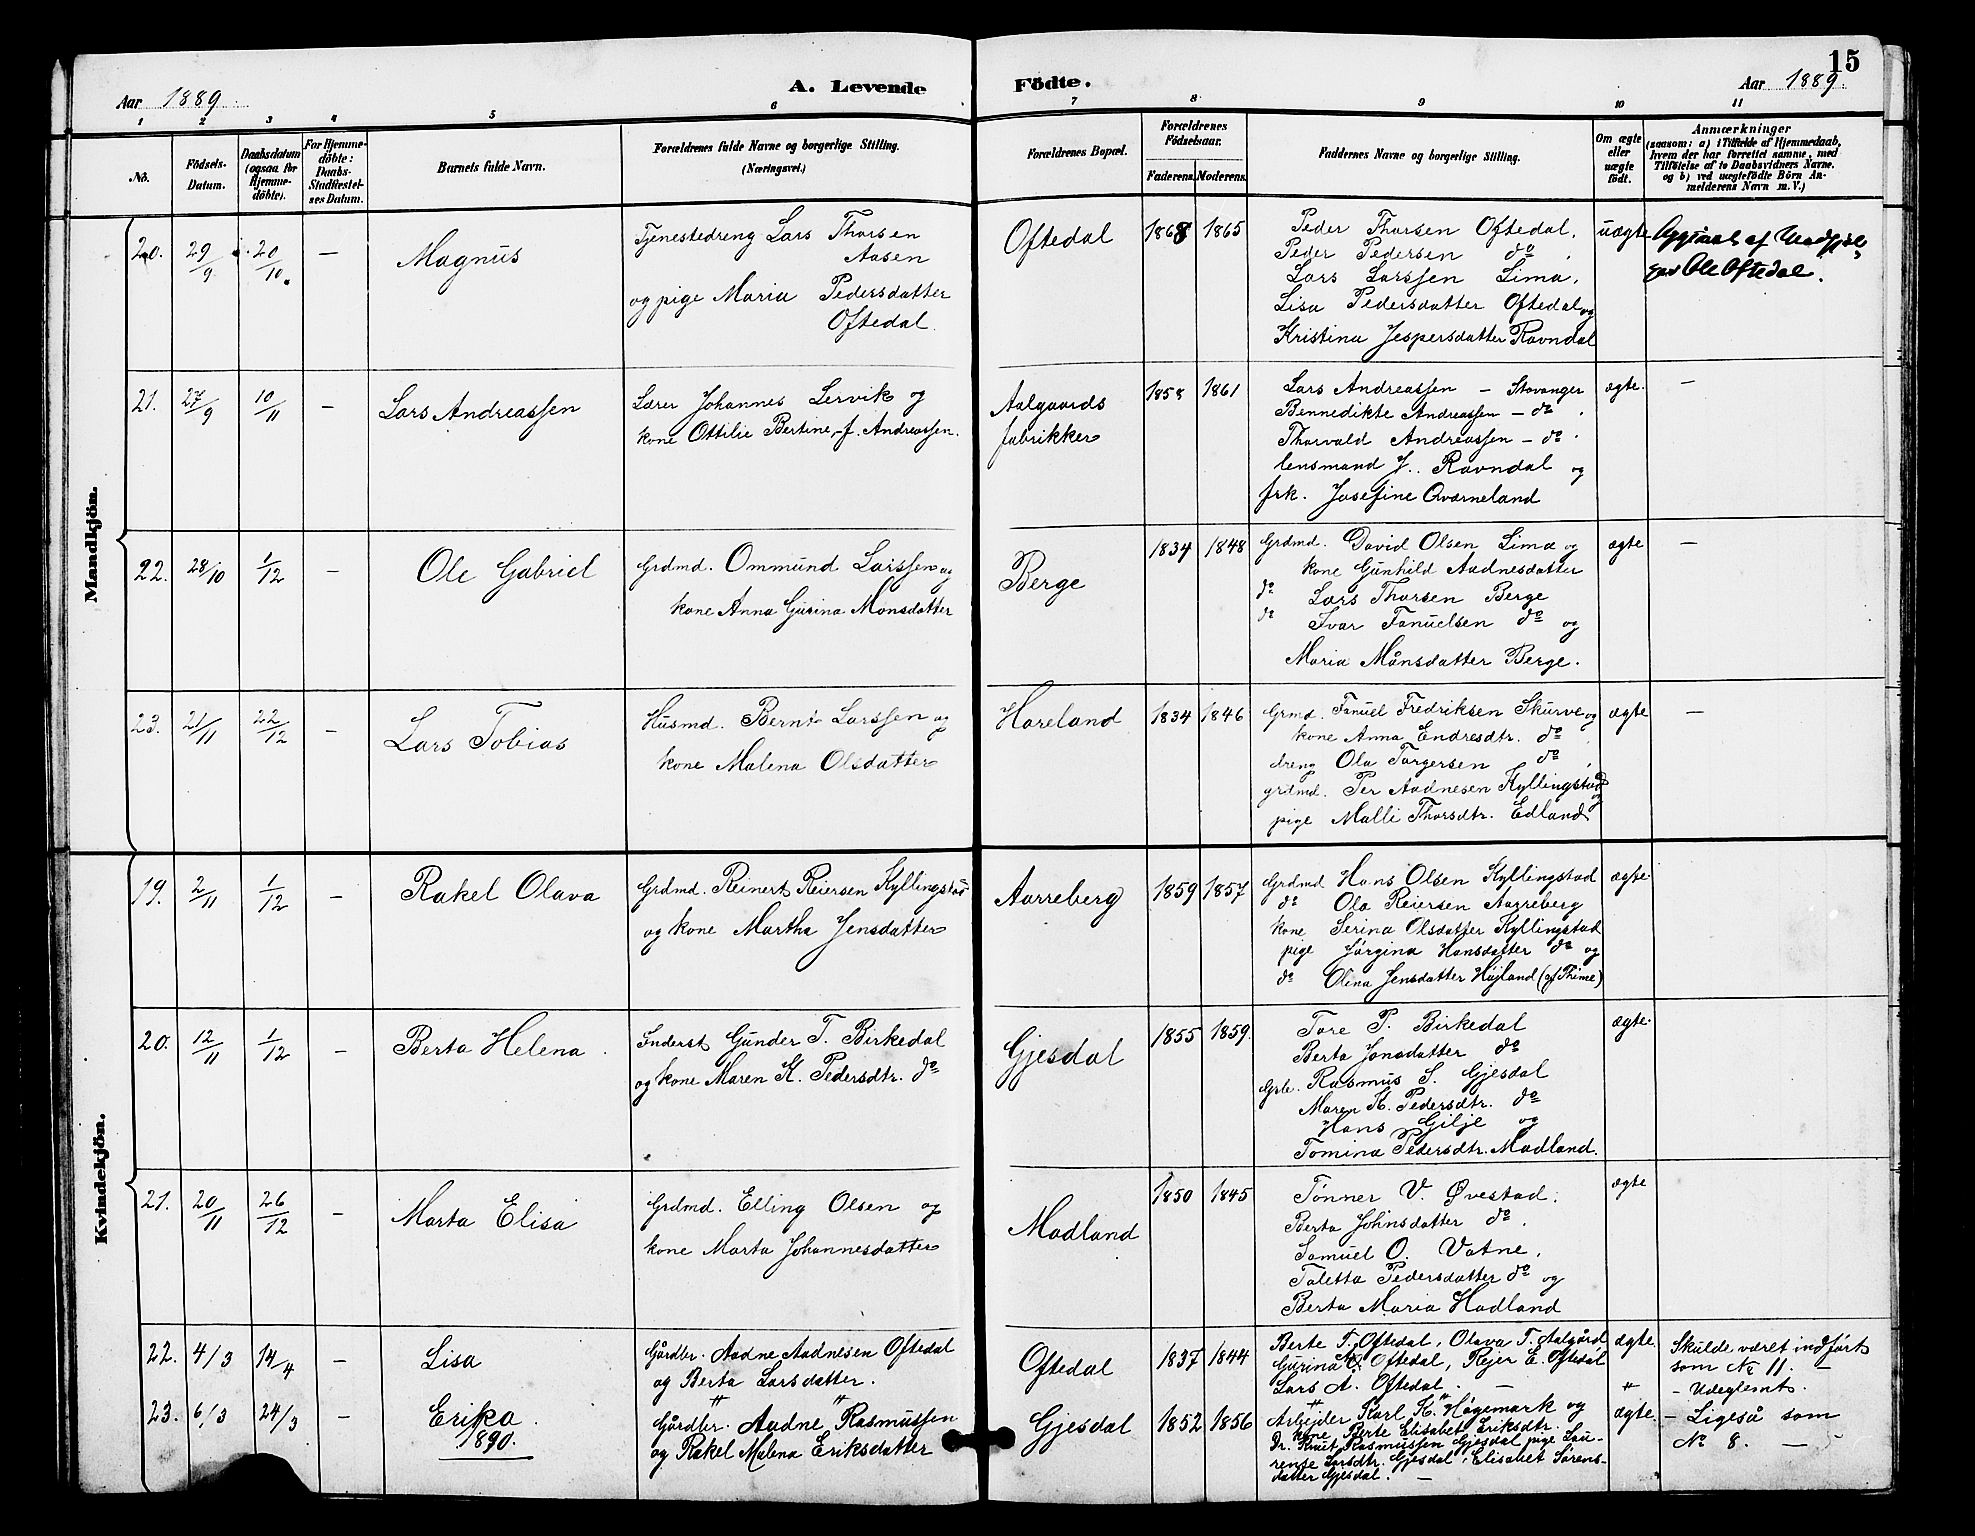 15
Aar 1889.
A. Levende
Födte.
Aar 1889.
1 2 3 4 5 6 7 8 9 10 11
No.
Födsels-
Datum.
Daabsdatum
(ogsaa for
Hjemme-
döbte).
For Hjemme-
döbte:
Daabs-
Stadfæstel-
ses Datum.
Barnets fulde Navn.
Forældrenes fulde Navne og borgerlige Stilling.
(Næringsvei.)
Forældrenes Bopæl.
Forældrenes
Födselsaar.
Faderens. Moderens.
Faddernes Navne og borgerlige Stilling.
Om ægte
eller
uægte
födt.
Anmærkninger
(saasom: a) i Tilfælde af Hjemmedaab,
hvem der har forrettet samme, med
Tilföielse af to Daabsvidners Navne.
og b) ved uægtefödte Börn An-
melderens Navn m. V.)
Mandkjön.
20. 29/9 20/10. — Magnus
Tjenestedreng Lars Thorsen
Aasen
og pige Maria Pedersdatter
Oftedal.
Oftedal 1868 1865
Peder Thorsen Oftedal.
Peder Pedersen do.
Lars Larssen Lima.
Lisa Pedersdatter Oftedal og
Kristina Jespersdatter Ravndal
uægte
Ole Oftedal.
21. 27/9 10/11 — Lars Andreassen
Lærer Johannes Lervik og
kone Ottilie Bertine, f. Andreassen.
Aalgaards
fabrikker
1858 1861
Lars Andreassen — Stavanger
Bennedikte Andreassen — do.
Thorvald Andreassen — do.
lensmand J. Ravndal og
frk. Josefine Qværneland
ægte. —
22. 28/10 1/12 — Ole Gabriel
Grdmd. Ommund Larssen og
kone Anna Gurina Monsdatter
Berge 1834 1848
Grdmd. David Olsen Lima og
kone Gunhild Aadnesdatter
do Lars Thorsen Berge
do Ivar Fanuelsen do og
Maria Månsdatter Berge.
ægte —
23. 21/11 22/12 — Lars Tobias
Husmd. Bernt Larssen og
kone Malena Olsdatter
Horeland 1834 1846
Grmd. Fanuel Fredriksen Skurve og
kone Anna Endresdtr. do.
dreng Ola Torgersen do.
grdmd. Per Aadnesen Kyllingstad og
pige Malli Thorsdtr. Edland
ægte —
Kvindekjön.
19. 2/11 1/12 — Rakel Olava
Grdmd. Reinert Reiersen Kyllingstad
og kone Martha Jensdatter
Aarreberg 1859 1857
Grdmd Hans Olsen Kyllingstad
do Ola Reiersen Aarreberg
kone Serina Olsdatter Kyllingstad
pige Jørgina Hansdatter do og
do Olina Jensdatter Højland (af Thime)
ægte
20. 12/11 1/12 — Berta Helena.
Inderst Gunder T. Birkedal
og kone Maren K. Pedersdtr. do
Gjesdal 1855 1859.
Tore P. Birkedal
Berta Jonsdatter do
Grbr. Rasmus S. Gjesdal
Maren K. Pedersdtr. do
Hans Gilje og
Tomina Pedersdtr. Madland.
ægte.
21. 20/11 26/12 — Marta Elisa
Grdmd. Elling Olsen og
kone Marta Johannesdatter
Madland 1850 1845
Tønner V. Øvestad.
Berta Johnsdatter do.
Samuel O. Vatne.
Taletta Pedersdatter do og
Berta Maria Madland
ægte
22. 4/3 14/4 — Lisa
Gårdbr. Aadne Aadnesen Oftedal
og Berta Larsdatter.
Oftedal 1837 1844
Berte T. Oftedal, Olava T. Aalgård
Gurina A. Oftedal, Rejer E. Oftedal
Lars A. Oftedal. —
ægte.
Skulde været indført
som No 11. —
— Udeglemt.
23. 6/3 24/3 — Erika.
1890.
Gårdbr. Aadne Rasmussen
og Rakel Malena Eriksdatter
Gjesdal 1852 1856
Arbejder Karl K. Høgemark og
kone Berte Elisabet Eriksdtr.
Dr. Knut Rasmussen Gjesdal, pige Lau-
rense Larsdtr. Gjesdal, Elisabet Sørens-
datter Gjesdal. —
ægte.
— Ligeså som
No 8. —